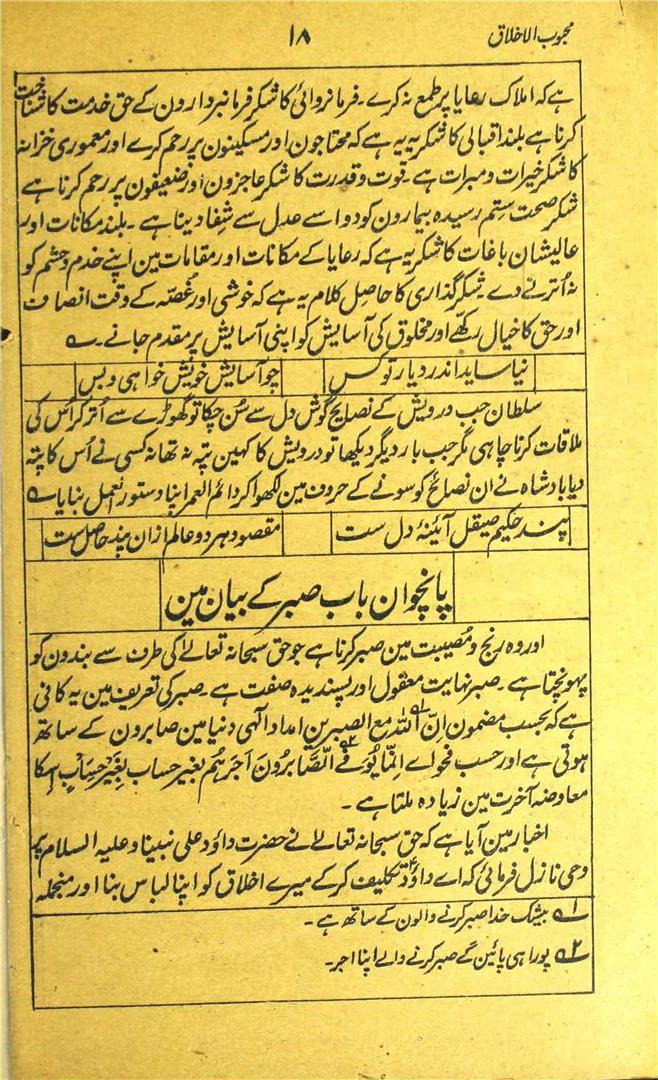 محبوب الاخلاق
۱۸
ہے کہ املاک رعایا پر طمع نہ کرے۔ فرمانروائی کا شکر فرمانبردارون کے حق خدمت کا شناخت
کرنا ہے بلند اقبالی کا شکریہ یہ ہے کہ محتاجون اور مسکینون پر رحم کرے اور معموری خزانہ
کا شکر خیرات و مبرات ہے۔ قوت و قدرت کا شکر عاجزون اور ضعیفون پر رحم کرنا ہے
شکر صحت ستم رسیدہ بیمارون کو دوا سے عدل سے شفا دینا ہے۔ بلند مکانات اور
عالیشان باغات کا شکر یہ ہے کہ رعایا کے مکانات اور مقامات مین اپنے خدم و حشم کو
نہ اُترنے دے۔ شکر گذاری کا حاصل کلام یہ ہے کہ خوشی اور غصّہ کے وقت انصاف
اور حق کا خیال رکھے اور مخلوق کی آسایش کو اپنی آسایش پر مقدم جانے۔ ؎
نیاساید اندر دیار تو کس
چو آسایش خویش خواہی و بس
سلطان جب درویش کے نصایح گوش دل سے سُن چکا تو گھوڑے سے اُتر کر اُس کی
ملاقات کرنا چاہی مگر جب بار دیگر دیکھا تو درویش کا کہین پتہ نہ تھا نہ کسی نے اُس کا پتہ
دیا بادشاہ نے ان نصائح کو سونے کے حروف مین لکھوا کر دائم العمر اپنا دستور العمل بنایا ؎
پند حکیم صیقل آئینۂ دل ست
مقصود ہر دو عالم ازان پند حاصل ست
پانچوان باب صبر کے بیان مین
اور وہ رنج و مصیبت مین صبر کرنا ہے جو حق سبحانہ تعالےٰ کی طرف سے بندون کو
پہونچتا ہے۔ صبر نہایت معقول اور پسندیدہ صفت ہے۔ صبر کی تعریف مین یہ کافی
ہے کہ بحسب مضمون اِنَّ اللّٰہ مع الصبرین امداد الٰہی دنیا مین صابرون کے ساتھ
ہوتی ہے اور حسب فحواے اِنَّمَا یُوَفَّے الصَّابِرُونَ اَجرَہُم بغیر حساب بِغَیرِ حِسَابٍ اسکا
معاوضہ آخرت مین زیادہ ملتا ہے۔
اخبار مین آیا ہے کہ حق سبحانہ تعالےٰ نے حضرت داؤد علی نبینا و علیہ السلام پر
وحی نازل فرمائی کہ اے داؤد تکلیف کر کے میرے اخلاق کو اپنا لباس بنا اور منجملہ
۱؎ بیشک خدا صبر کرنے والون کے ساتھ ہے۔
۲؎ پورا ہی پائین گے صبر کرنے والے اپنا اجر۔